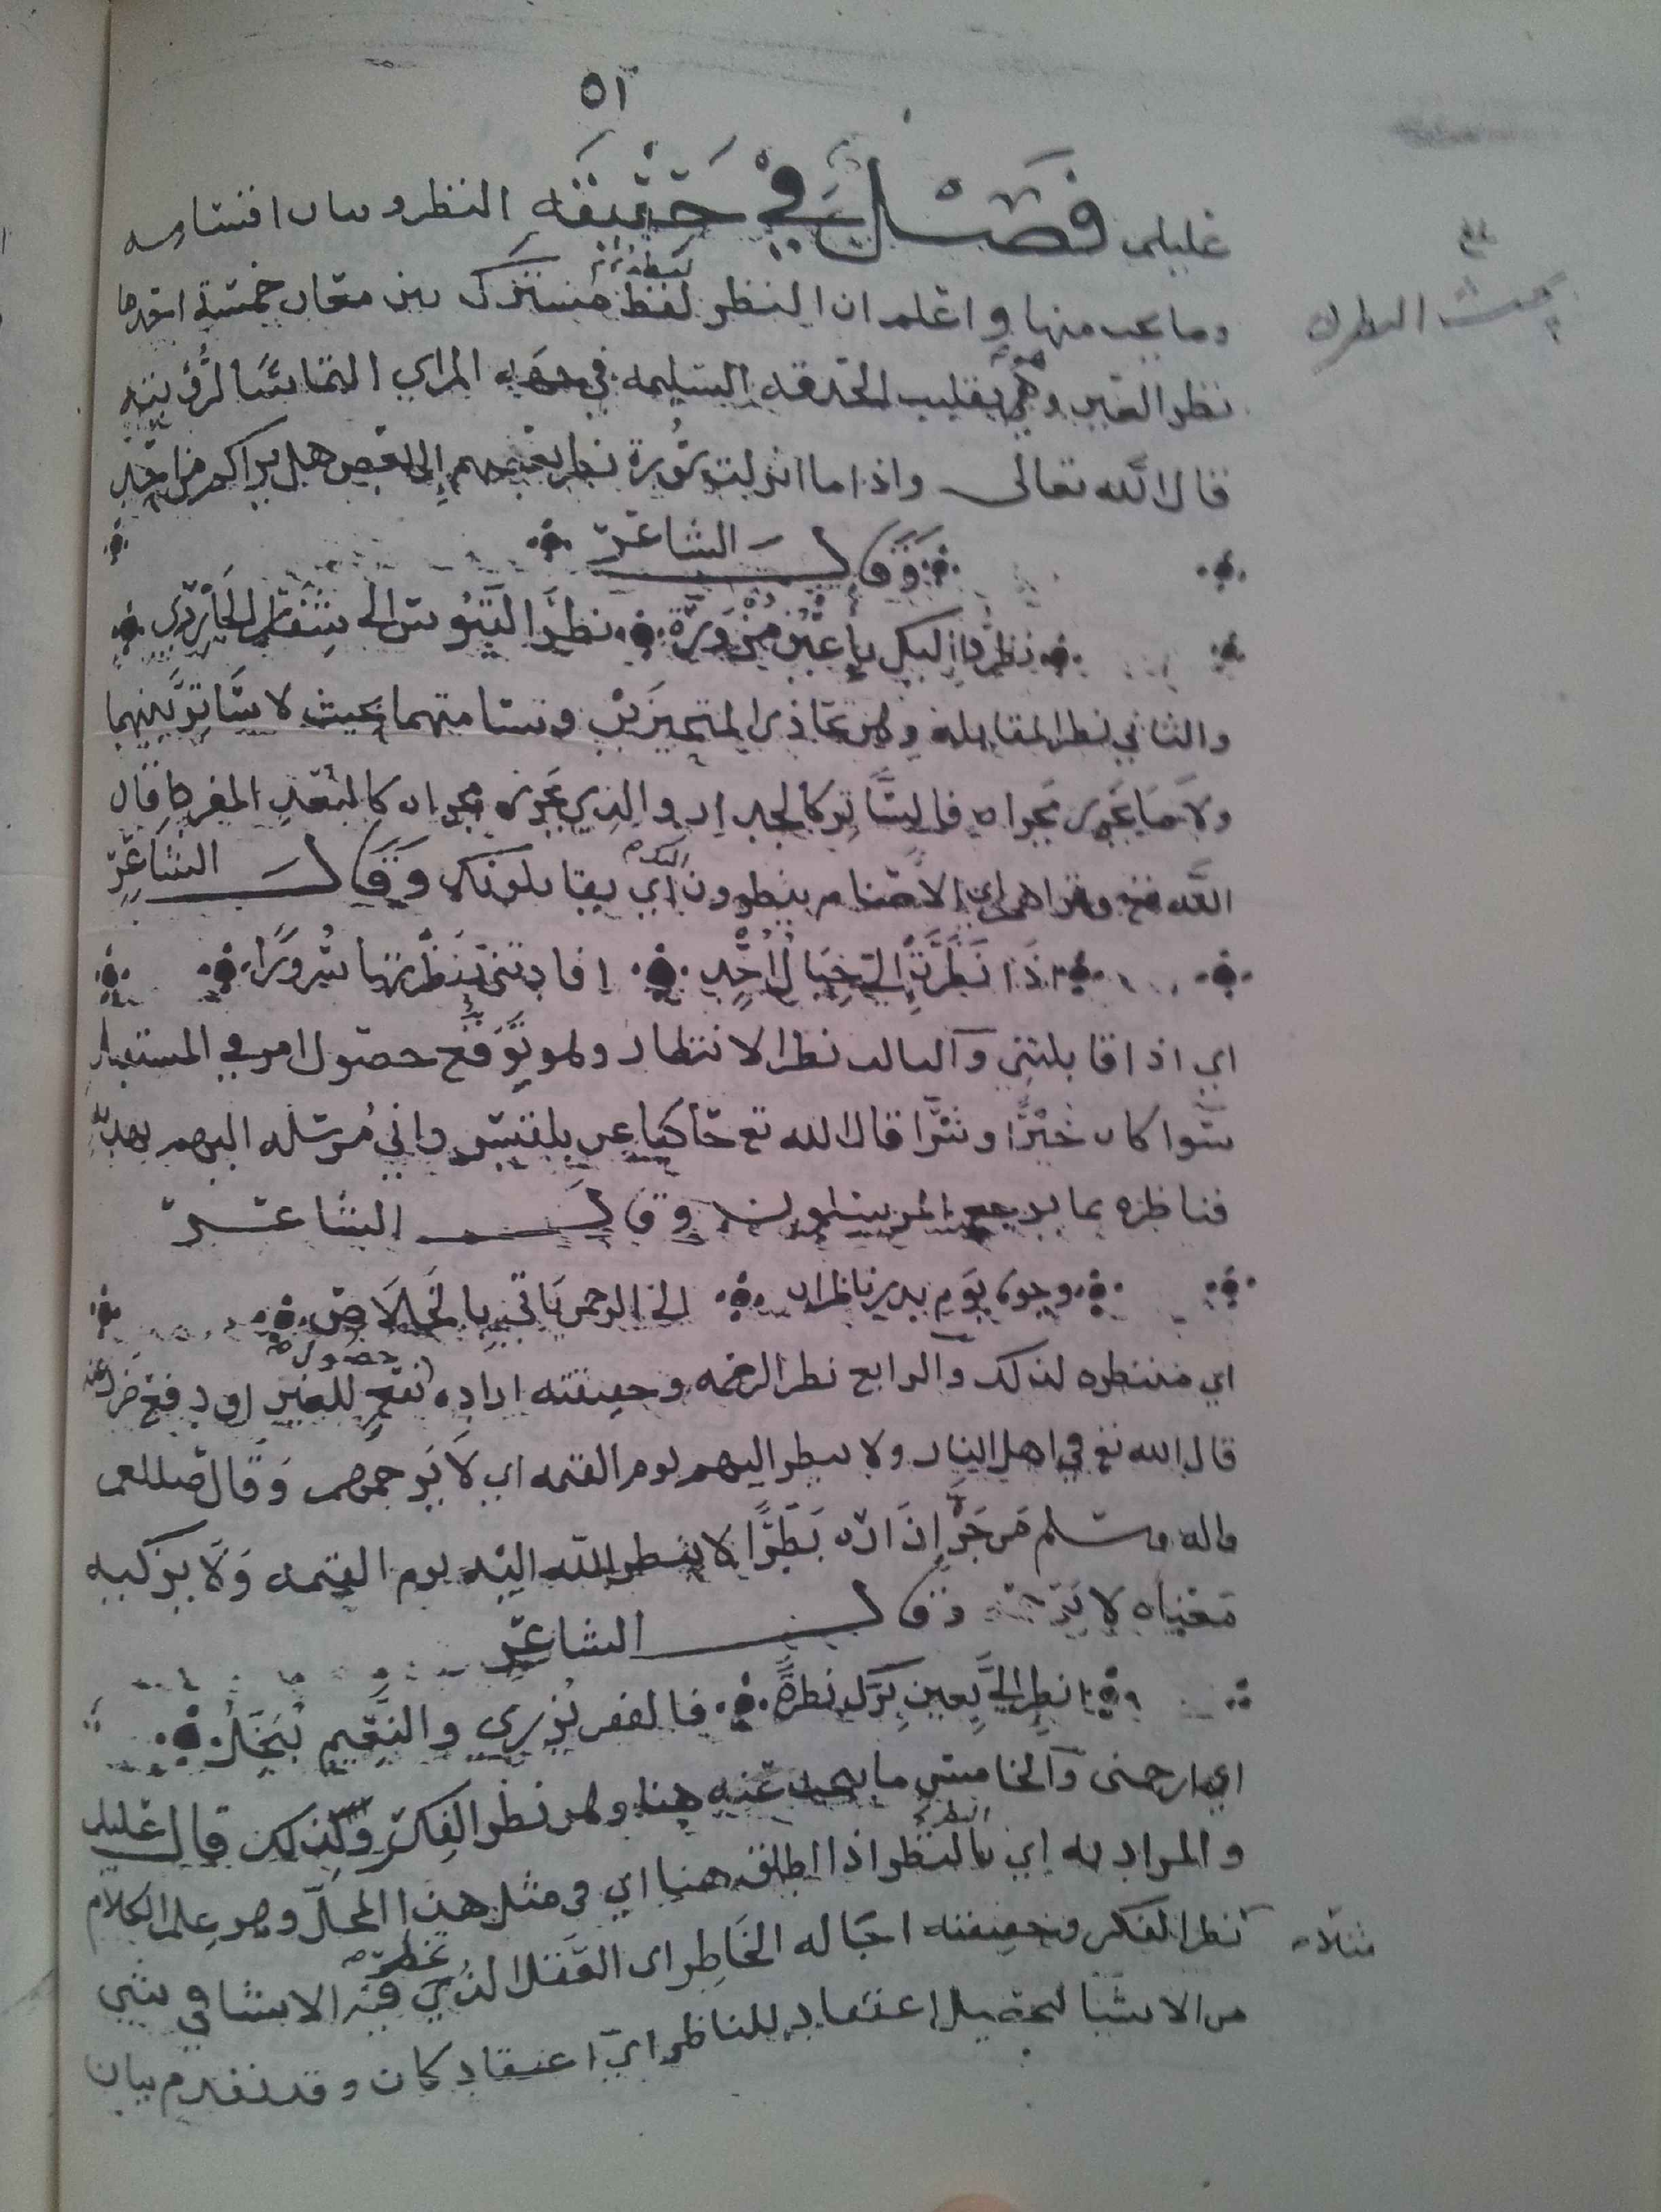 ٥١
عليلم فَصْلٌ فِي حَقِيقَة النظر وبيان اقسامه
وما يجب منها واعلم ان النظر لفظ مشترك بين معان خمسة احدها
نظر العين وهي تقليب الحدقه السليمه في جهه المرإي التماسًا لرؤيته
قال الله تعالى واذا ما انزلت سورة نظر بعضهم إلى بعض هل يراكم من احد
وَقَال الشاعر
نظروا إليك بأعين مُزْوَرَّة نظر التيوس الى شفار الجازر
والثاني نظر المقابله وهو تحاذى المتحيزين وتسامتهما بحيث لا ساتر بينهما
ولا ما يجرى مجراه فالساتر كالجدار والذي يجرى مجراه كالبعد المفرط قال
الله تع وتراهم اي الاصنام ينظرون اليك اي يقابلونك وَقَال الشاعر
إذَا نَظَرَتْ إلي جبال أُحُدٍ افادتني بنظرتها سرورًا
اي اذا قابلتني والثالث نظر الانتظار وهو توقع حصول امر في المستقبل
سوا كان خيرًا او شرًا قال الله تع حاكيا عن بلقيس واني مرسله اليهم بهديه
فناظره بما يرجع المرسلون وقال الشاعر
وجوه يوم بدر ناظرات الى الرحمن يَاتي بالخلاص
اي منتظره لذلك والرابع نظر الرحمه وحقيقته اراده حصول نفع للغير او دفع ضرر عنه
قال الله تع في اهل النار ولا ينظر اليهم يوم القيمه اي لا يرحمهم وقال صلى الله عليه
واله وسلم من جَرَّ إزَاره بَطَرًا لا ينظر الله اليْه يوم القيمه وَلا يزكيه
معناه لا يرحمه وقال الشاعر
انظر إليَّ بعين برّك نظرةً فالفقر يُزري والنعيم يُبَجِّلُ
اي ارحمنى والخامس ما يبحث عنه هنا وهو نظر الفكر ولذلك قال عليلم
والمراد به اي بالنظر اذا اطلق هنا اي في مثل هذا المحلّ وهو علم الكلام
نظر الفكر وحقيقته اجاله الخَاطِر اى العقل الذي فيه الانسان في شي
من الاشيا لتحصيل اعتقاد للناظر اي اعتقاد كان وقد تقدم بيان
بلغ
بحث النظر
مثلا